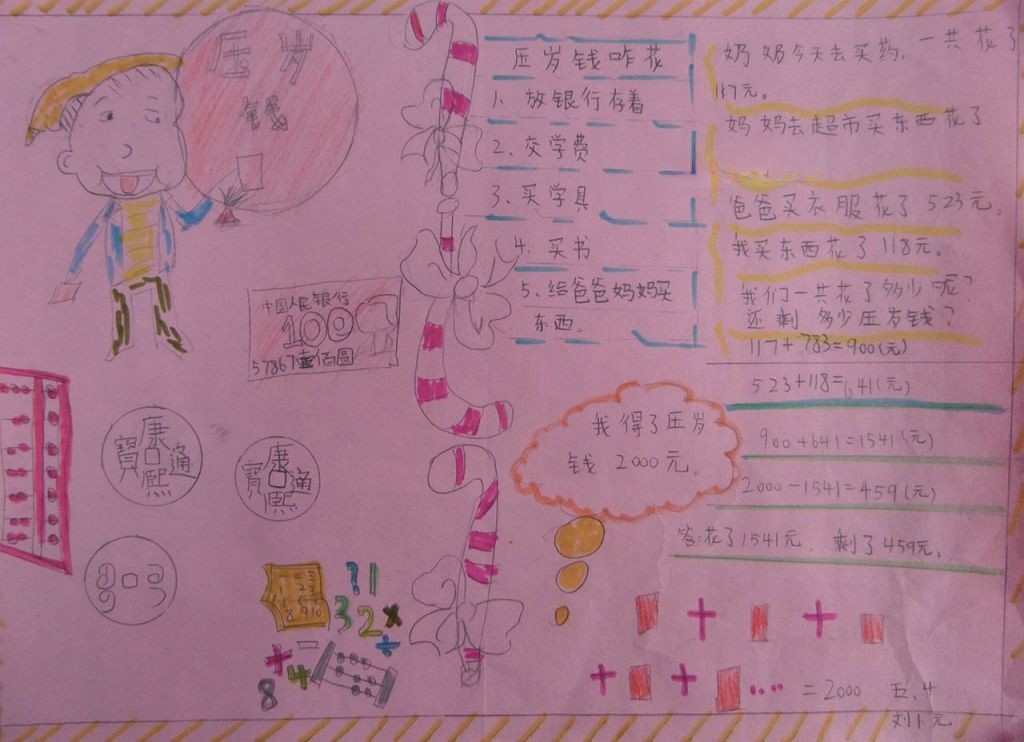 压岁
钱
压岁钱咋花
1、放银行存着
2、交学费
3、买学具
4、买书
5、给爸爸妈妈买
东西。
奶奶今天去买药,一共花了
117元。
妈妈去超市买东西花了
爸爸买衣服花了523元。
我买东西花了118元。
我们一共花了多少呢?
还剩多少压岁钱?
117+783=900(元)
523+118=641(元)
900+641=1541(元)
2000-1541=459(元)
答:花了1541元,剩了459元。
我得了压岁
钱2000元。
中国人民银行
100
57867壹佰圆
康熙通寶
康熙通寶
?1
32×
÷
+4
8
+ +
+ + ....=2000
五.4
刘卜元